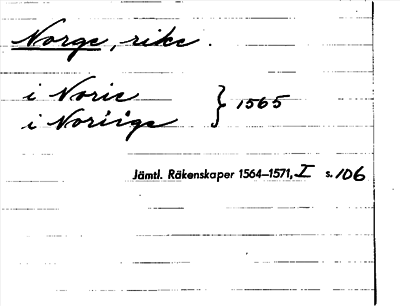 Norge, rike.
i Norie } 1565
i Noriige
Jämtl. Räkenskaper 1564–1571, I s. 106